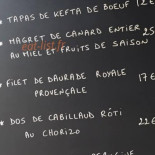 * TAPAS DE KEFTA DE BOEUF 12
* MAGRET DE CANARD ENTIER 25
AU MIEL ET FRUITS DE SAISON
* FILET DE DAURADE ROYALE 17€
PROVENÇALE
* DOS DE CABILLAUD RÔTI 22€
AU CHORIZO